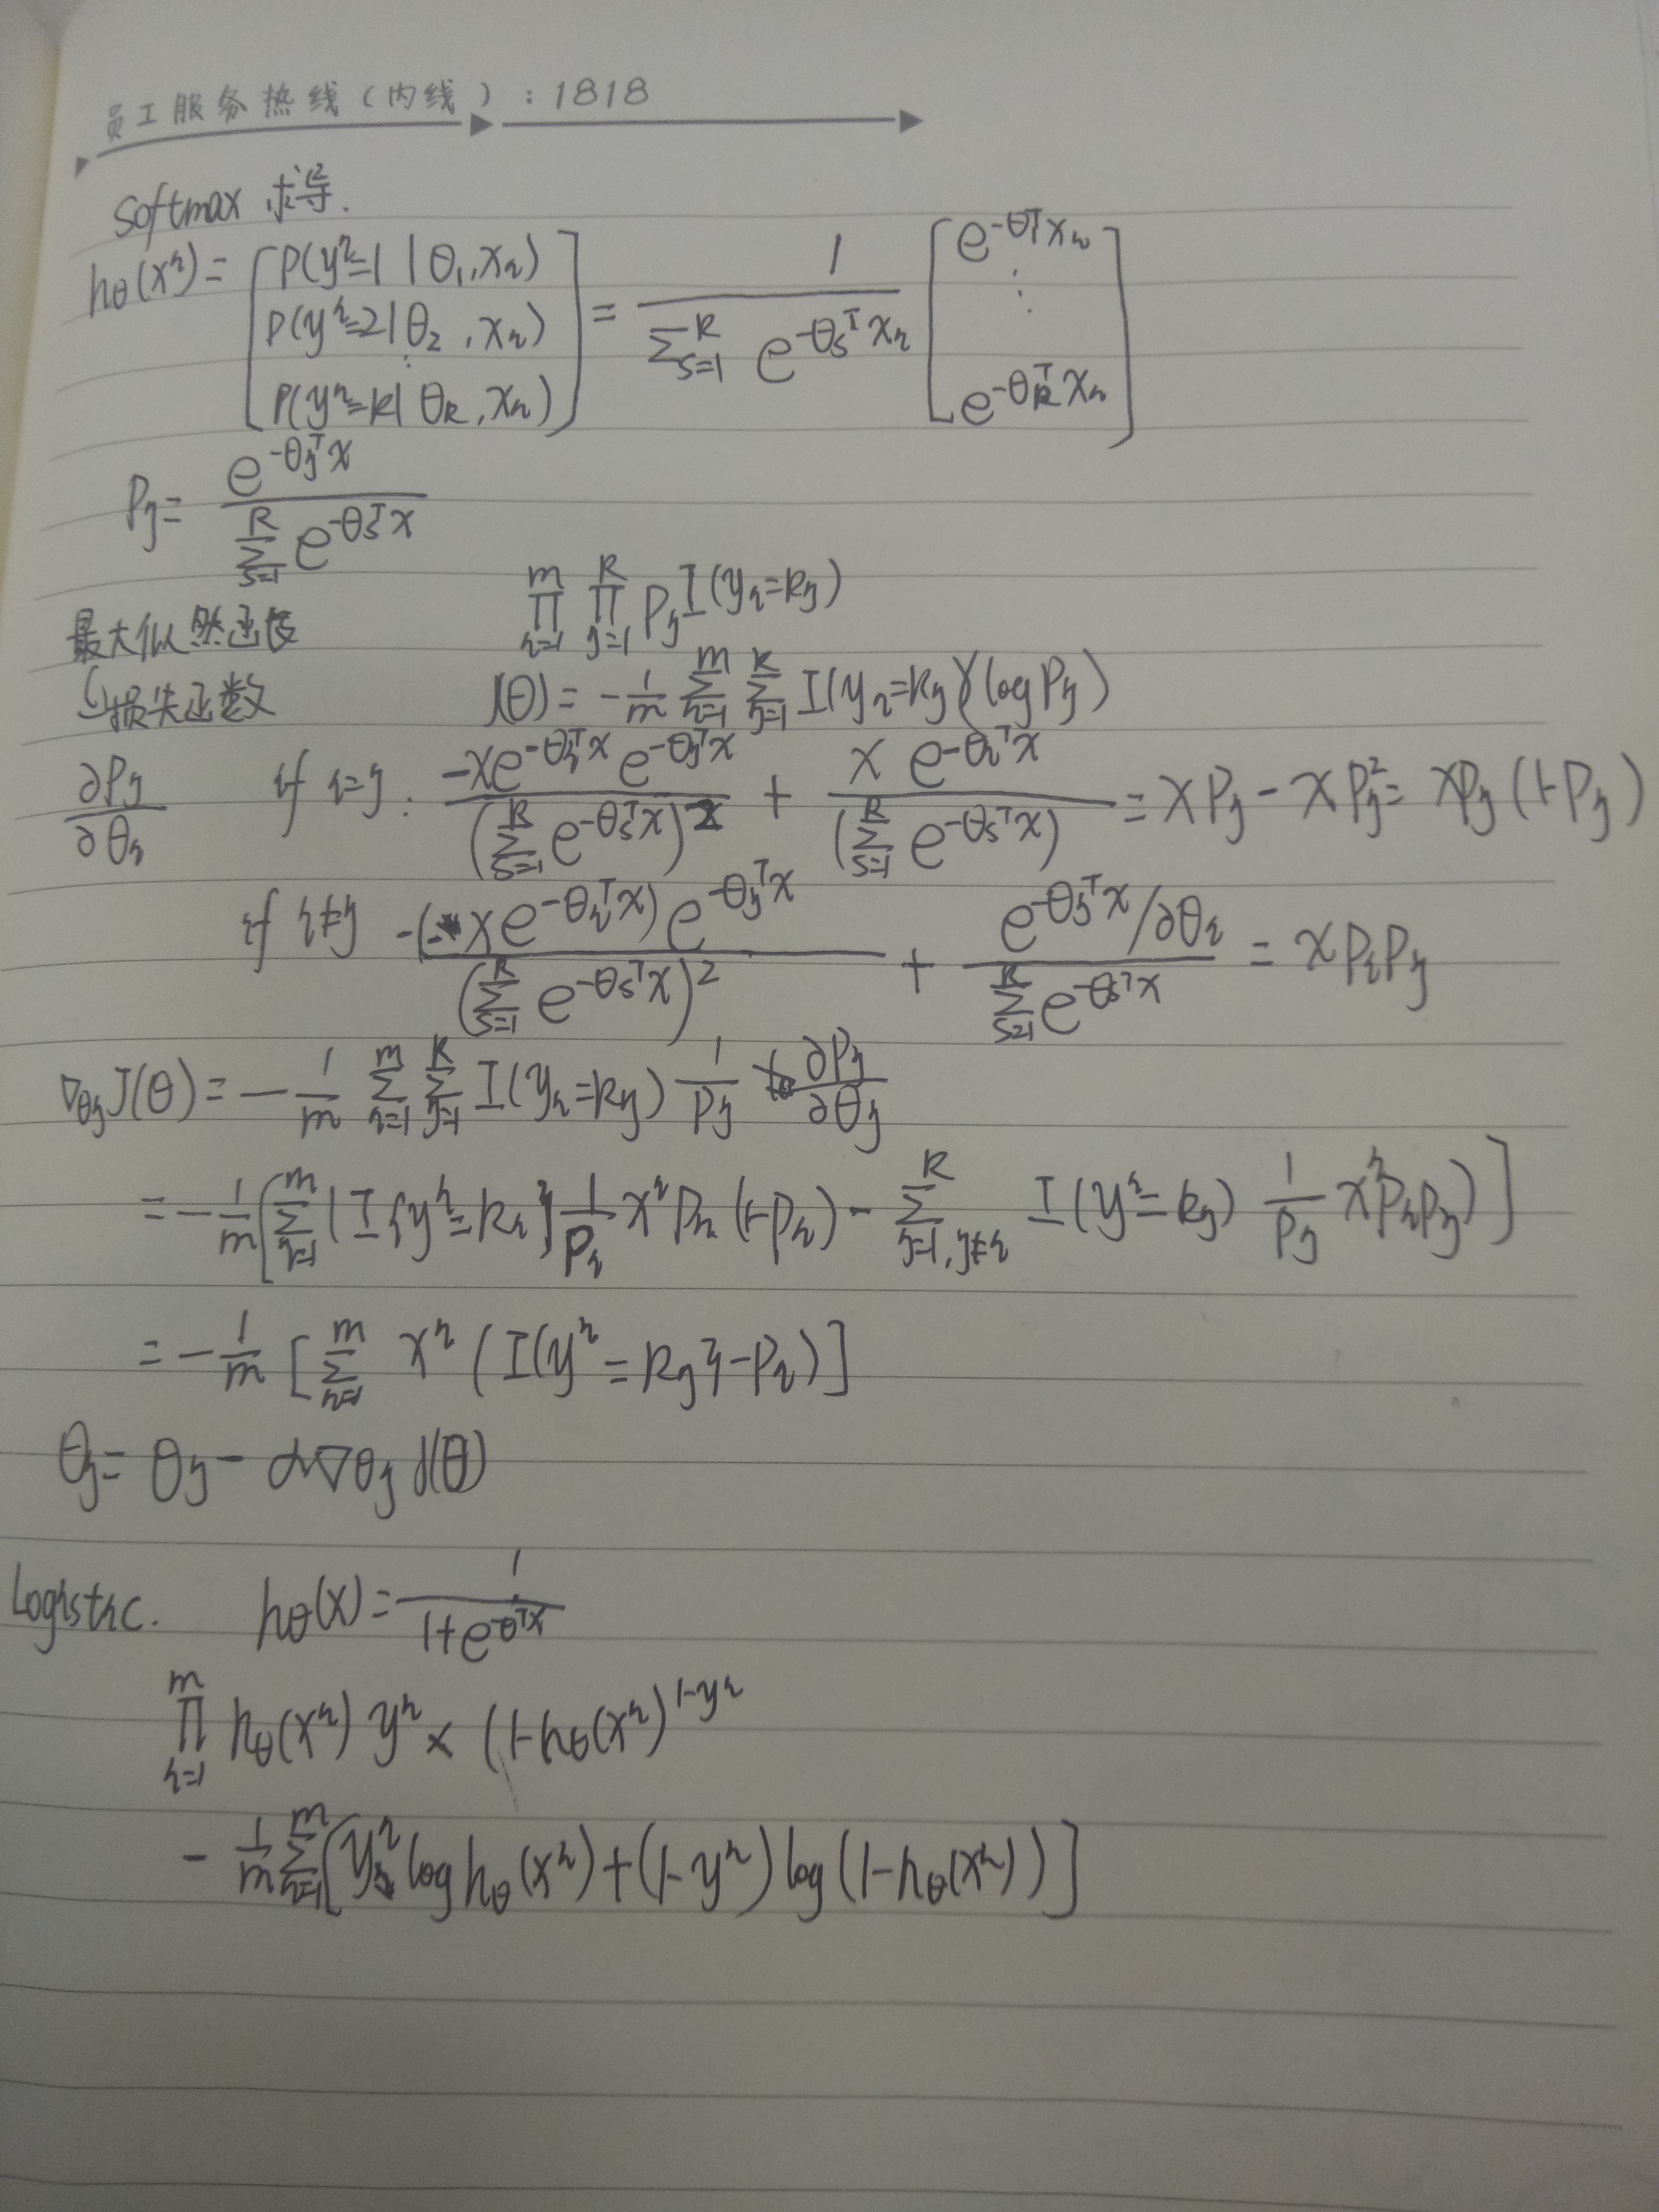 员工服务热线（内线）：1818
softmax 求导.
hθ(x^i) = [P(y^i=1 | θ_1, x_i) P(y^i=2 | θ_2, x_i) ⋮ P(y^i=k | θ_k, x_i)] = 1 / (∑_{s=1}^k e^{-θ_s^T x_i}) [e^{-θ_1^T x_i} ⋮ e^{-θ_k^T x_i}]
P_j = e^{-θ_j^T x} / (∑_{s=1}^k e^{-θ_s^T x})
最大似然函数 ∏_{i=1}^m ∏_{j=1}^k P_j^{I(y_i=k_j)}
损失函数 J(θ) = -1/m ∑_{i=1}^m ∑_{j=1}^k I(y_i=k_j)(log P_j)
∂P_j/∂θ_i if i=j: -xe^{-θ_i^T x} e^{-θ_j^T x} / (∑_{s=1}^k e^{-θ_s^T x})^2 + x e^{-θ_i^T x} / (∑_{s=1}^k e^{-θ_s^T x}) = xP_j - xP_j^2 = xP_j(1-P_j)
if i≠j -(-xe^{-θ_i^T x})e^{-θ_j^T x} / (∑_{s=1}^k e^{-θ_s^T x})^2 + e^{-θ_j^T x}/∂θ_i / ∑_{s=1}^k e^{-θ_s^T x} = xP_iP_j
∇_{θ_j}J(θ) = -1/m ∑_{i=1}^m ∑_{j=1}^k I(y_i=k_j) 1/P_j ∂P_j/∂θ_j
= -1/m [∑_{i=1}^m (I{y^i=k_i} 1/P_i x^i P_i(1-P_i) - ∑_{j=1,j≠i}^k I(y^i=k_j) 1/P_j x^i P_iP_j)]
= -1/m [∑_{i=1}^m x^i (I{y^i=k_j}-P_i)]
θ_j = θ_j - α∇θ_j J(θ)
Logistic. hθ(x) = 1 / (1+e^{-θ^T x})
∏_{i=1}^m hθ(x^i) y^i × (1-hθ(x^i)^{1-y^i}
- 1/m ∑_{i=1}^m [y^i log hθ(x^i)+(1-y^i)log(1-hθ(x^i))]